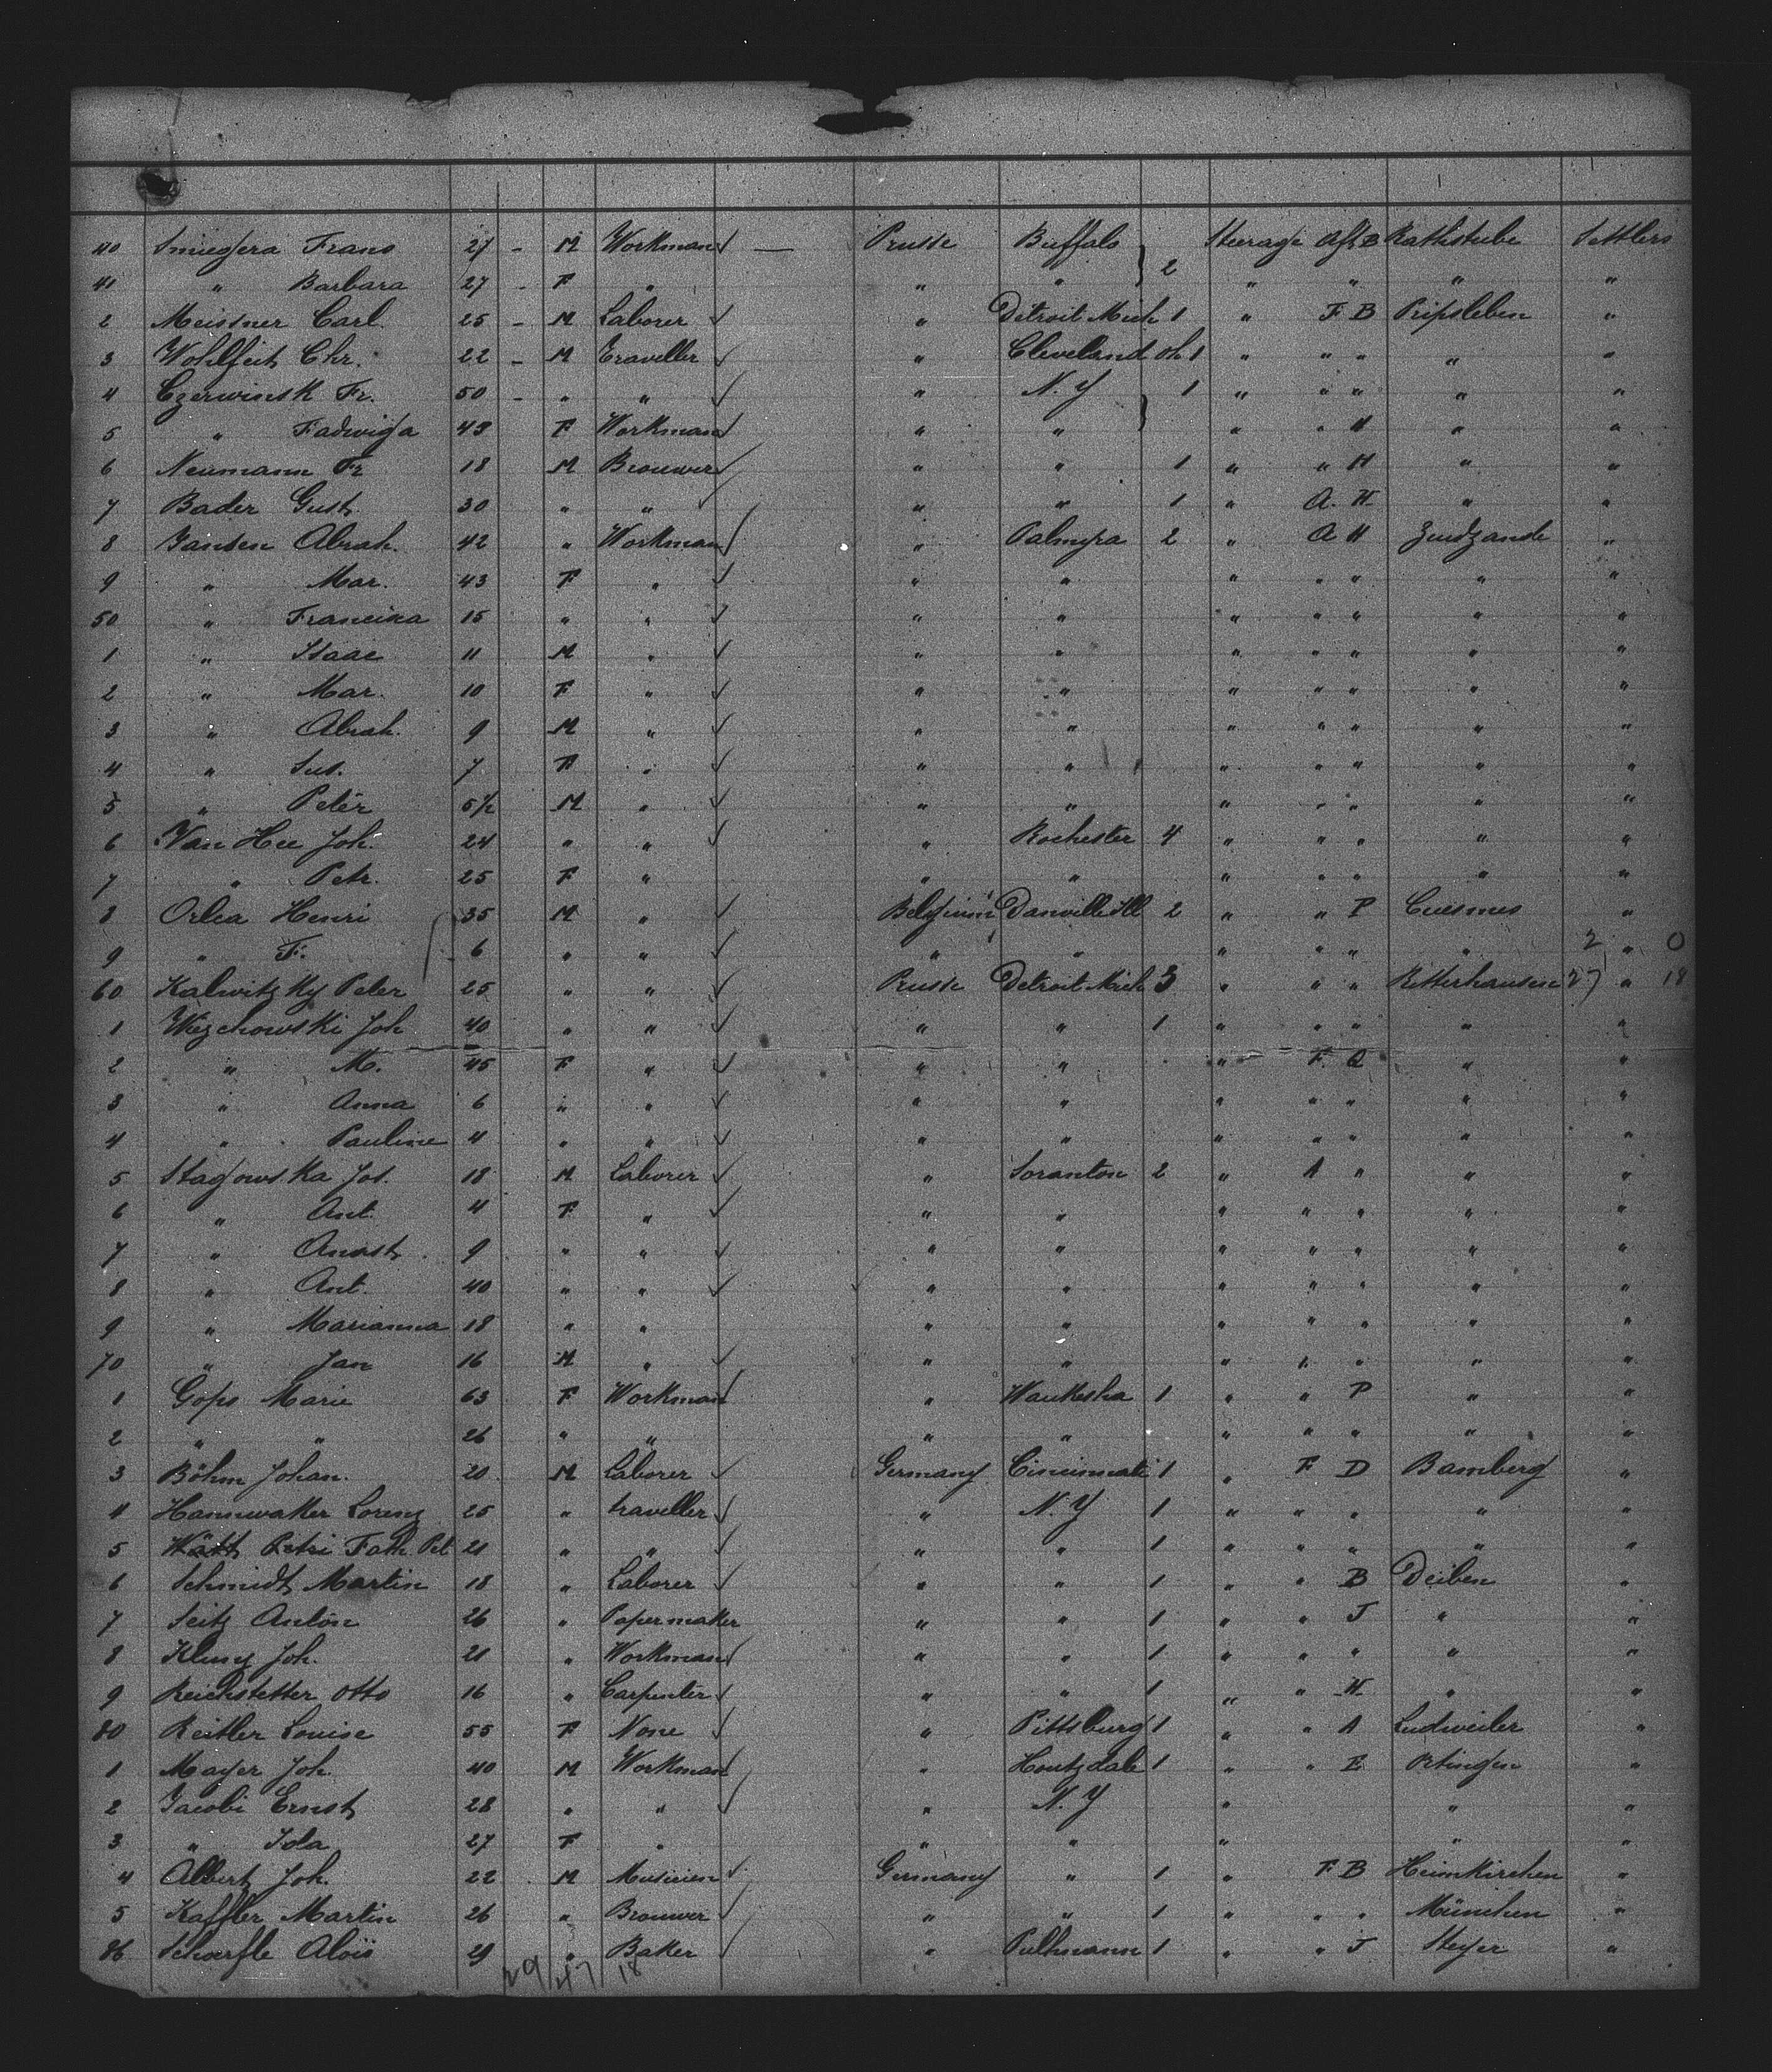 40 Smiegera Frans 27 - M Workman — Prusse Buffalo 2 Steerage Aft B Rathstube Settlers
41 " Barbara 27 - F " " " " " " "
2 Meissner Carl 25 - M Laborer " Detroit Mich 1 " F B Pripsleben "
3 Wohlfeit Chr. 22 - M Traveller " Cleveland Oh 1 " " " " "
4 Czerwinsk Fr. 50 - " " " N.Y 1 " " " " "
5 " Fadwiga 43 F Workman " " " " H " "
6 Neumann Fr 18 M Brouwer " " 1 " " H " "
7 Bader Gust 30 " " " " 1 " A. H " "
8 Jansen Abrah. 42 " Workman " Palmyra 2 " A H Zuidzande "
9 " Mar. 43 F " " " " " " " "
50 " Francina 15 " " " " " " " " "
1 " Isaac 11 M " " " " " " " "
2 " Mar. 10 F " " " " " " " "
3 " Abrah. 9 M " " " " " " " "
4 " Sus. 7 F " " " " " " " "
5 " Peter 5½ M " " " " " " " "
6 Van Hee Joh. 24 " " " Rochester 4 " " " " "
7 " Petr. 25 F " " " " " " " "
8 Orlea Henri 35 M " Belgium Danville Ill 2 " " P Cuesmes "
9 " F. 6 " " " " " " " " 2 " 0
60 Kalwitzky Peter 25 " " Prusse Detroit Mich 3 " " " Ritterhausen 27 " 18
1 Wiezchowski Joh 40 " " " " 1 " " " " "
2 " M. 45 F " " " " F. Q " "
3 " Anna 6 " " " " " " " " "
4 " Pauline 4 " " " " " " " " "
5 Stagowska Jos. 18 M Laborer " Soranton 2 " A " " "
6 " Ant. 4 F " " " " " " " "
7 " Anast. 9 " " " " " " " " "
8 " Ant. 40 " " " " " " " " "
9 " Marianna 18 " " " " " " " " "
70 " Jan 16 M " " " " " " " "
1 Gops Marie 63 F Workman " Waukesha 1 " " P " "
2 " " 26 " " " " " " " " "
3 Böhm Johan. 20 M Laborer Germany Cincinnati 1 " F D Bamberg "
4 Hannwaker Lorenz 25 " traveller " N.Y 1 " " " " "
5 Petri Fath. Pet 21 " " " " 1 " " " " "
6 Schmidt Martin 18 " Laborer " " 1 " " B Deiben "
7 Seitz Anton 26 " Papermaker " " 1 " " J " "
8 Kluny Joh. 21 " Workman " " 1 " " " " "
9 Reichstetter Otto 16 " Carpenter " " 1 " " H " "
80 Reitler Louise 55 F None " Pittsburg 1 " " A Ludweiler "
1 Mayer Joh. 40 M Workman " Houtzdale 1 " " E Ortingen "
2 Jacobi Ernst 28 " " " N.Y " " "
3 " Ida 27 F " " " " " "
4 Albert Joh. 22 M Musicien Germany " 1 " F B Heimkirchen "
5 Kaffler Martin 26 " Brouwer " " 1 " " " München "
86 Schaerfle Aloïs 29 " Baker " Pullmann 1 " " J Steyer "
29 47 18